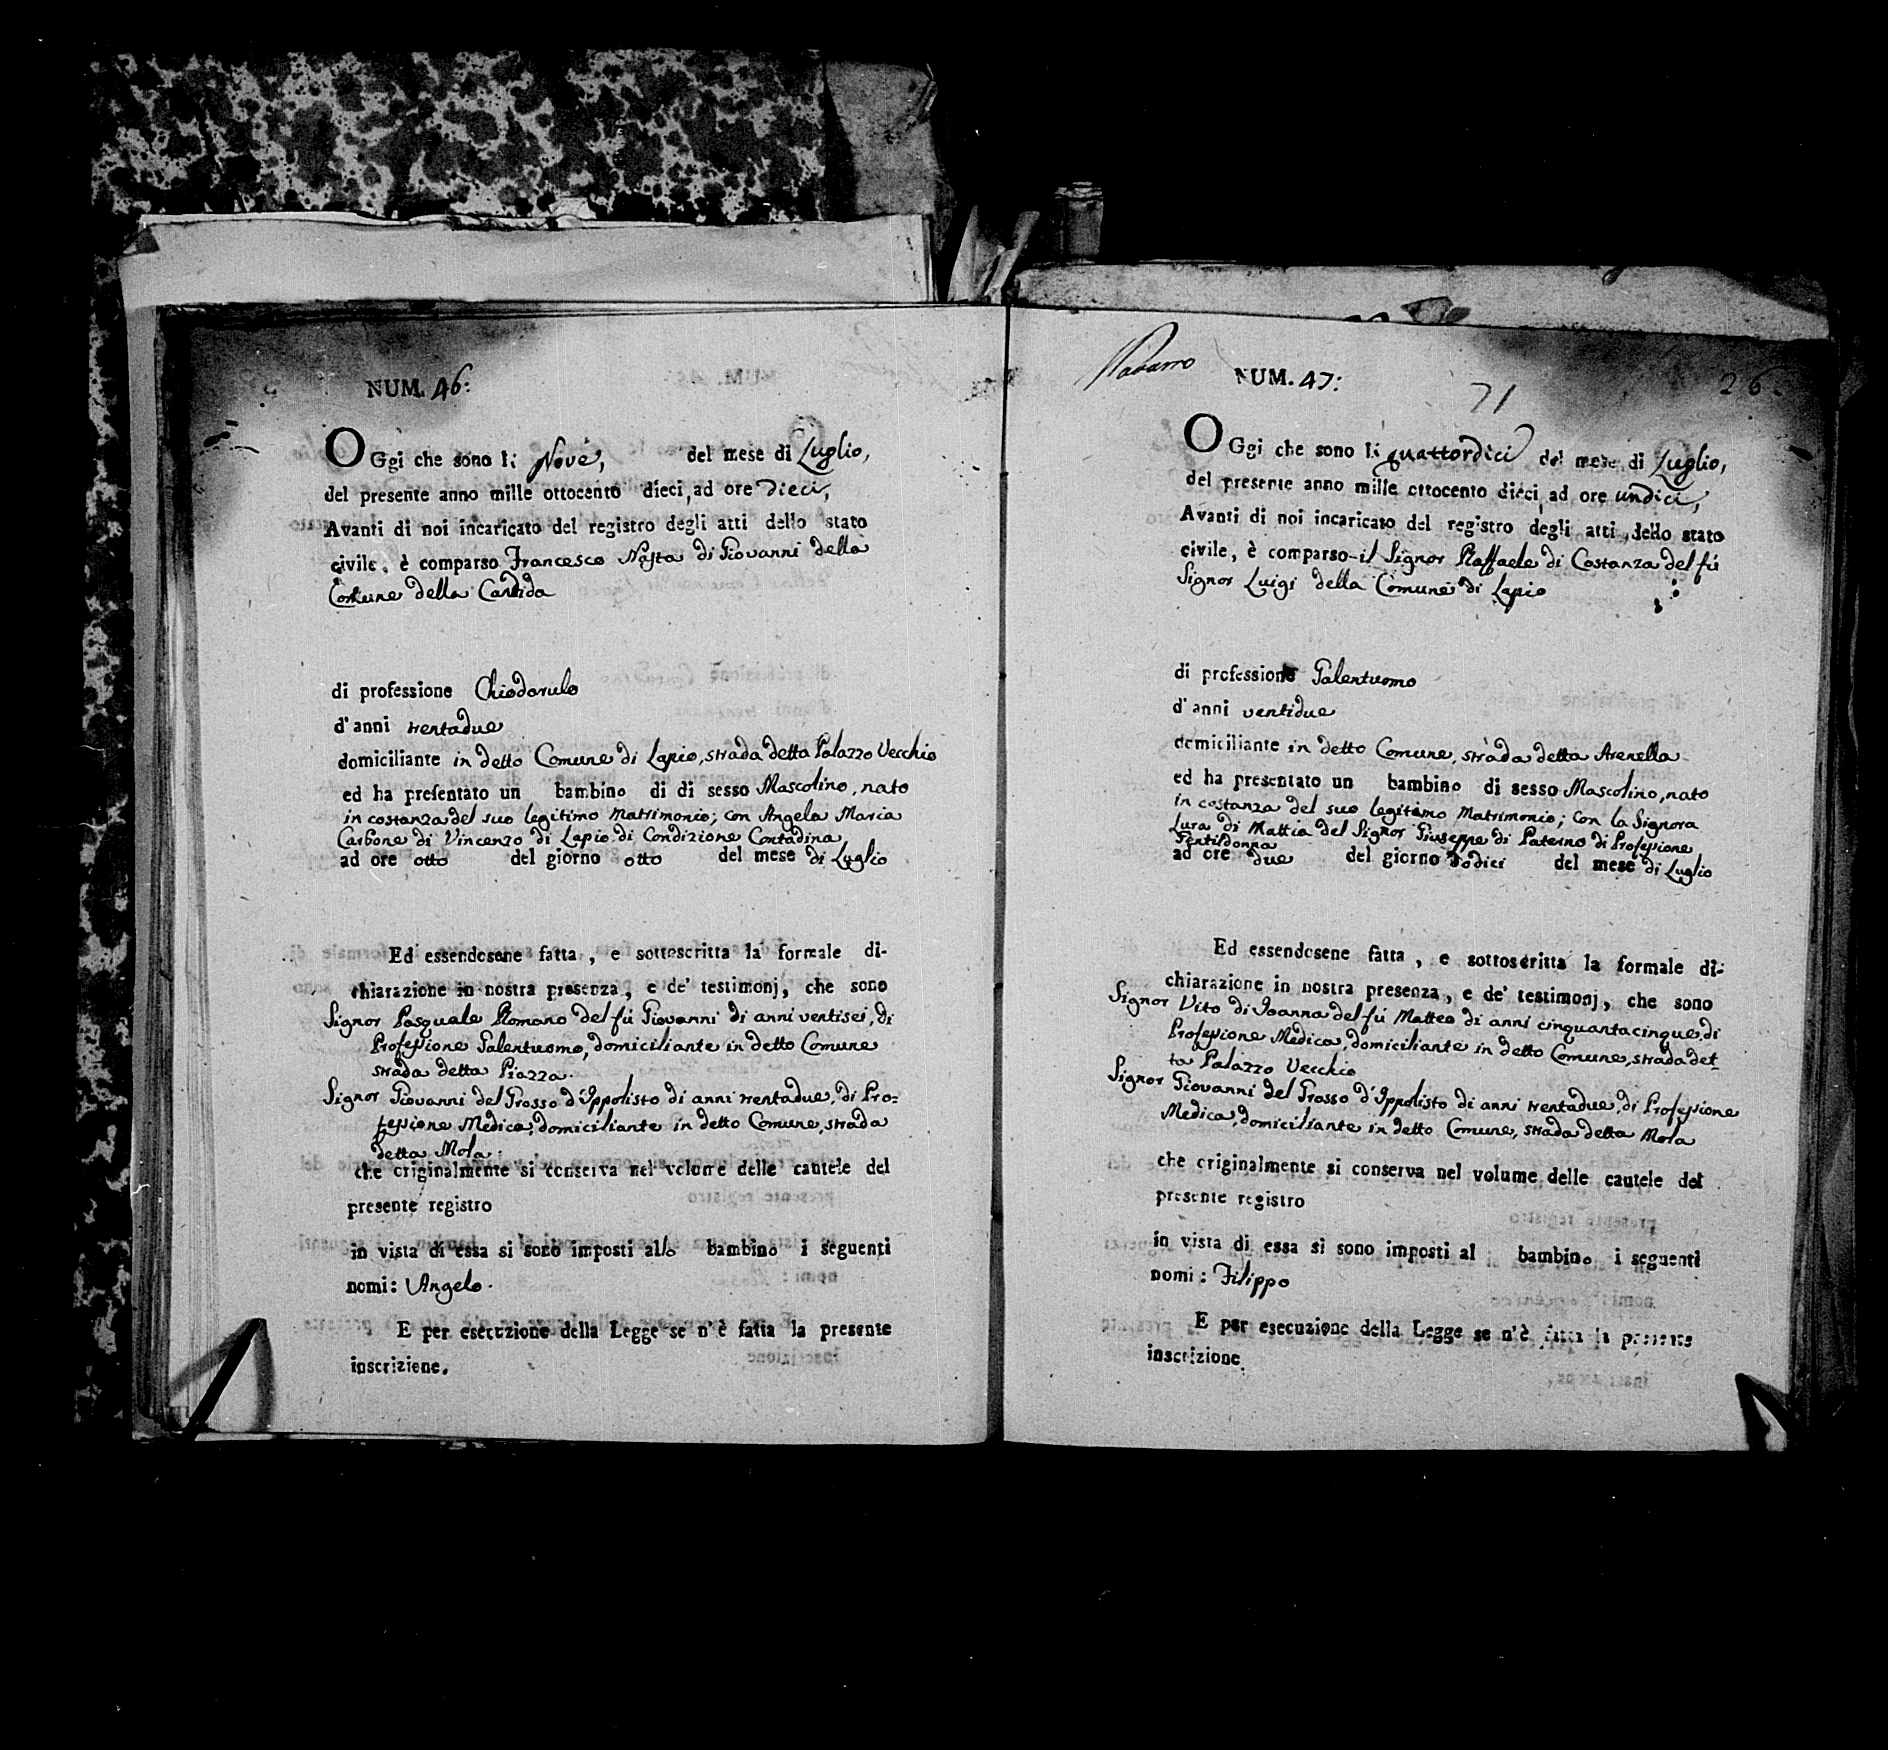 NUM. 46:
OGgi che sono li Nove, del mese di Luglio,
del presente anno mille ottocento dieci, ad ore Dieci,
Avanti di noi incaricato del registro degli atti dello stato
civile, è comparso Francesco Nasta di Giovanni della
Comune della Candida
di professione Chiodarulo
d'anni trentadue
domiciliante in detto Comune di Lapio, strada detta Palazzo Vecchio
ed ha presentato un bambino di di sesso Mascolino, nato
in costanza del suo legitimo Matrimonio; con Angela Maria
Carbone di Vincenzo di Lapio di Condizione Contadina
ad ore otto del giorno otto del mese di Luglio
Ed essendosene fatta, e sottoscritta la formale di-
chiarazione in nostra presenza, e de' testimonj, che sono
Signor Pasquale Romano del fù Giovanni di anni ventisei, di
Professione Galentuomo, domiciliante in detto Comune
strada detta Piazza.
Signor Giovanni del Grosso d'Ippolisto di anni trentadue, di Pro=
fessione Medica, domiciliante in detto Comune, strada
detta Mola.
che originalmente si conserva nel volume delle cautele del
presente registro
in vista di essa si sono imposti allo bambino i seguenti
nomi: Angelo.
E per esecuzione della Legge se n'è fatta la presente
inscrizione.
NUM. 47:
71
26
OGgi che sono li quattordici del mese di Luglio,
del presente anno mille ottocento dieci ad ore undici,
Avanti di noi incaricato del registro degli atti dello stato
civile, è comparso il Signor Raffaele di Costanza del fù
Signor Luigi della Comune di Lapio
di professione Galentuomo
d'anni ventidue
domiciliante in detto Comune, strada detta Arenella
ed ha presentato un bambino di sesso Mascolino, nato
in costanza del suo legitimo Matrimonio; con la Signora
Lura di Mattia del Signor Giuseppe di Paterno di Professione
Gentildonna
ad ore due del giorno Dodici del mese di Luglio
Ed essendosene fatta, e sottoscritta la formale di-
chiarazione in nostra presenza, e de' testimonj, che sono
Signor Vito di Joanna del fù Matteo di anni cinquantacinque, di
Professione Medica, domiciliante in detto Comune, strada det-
ta Palazzo Vecchio
Signor Giovanni del Grosso d'Ippolisto di anni trentadue, di Professione
Medica, domiciliante in detto Comune, strada detta Mola
che originalmente si conserva nel volume delle cautele del
presente registro
in vista di essa si sono imposti al bambino i seguenti
nomi: Filippo
E per esecuzione della Legge se n'è fatta la presente
inscrizione.